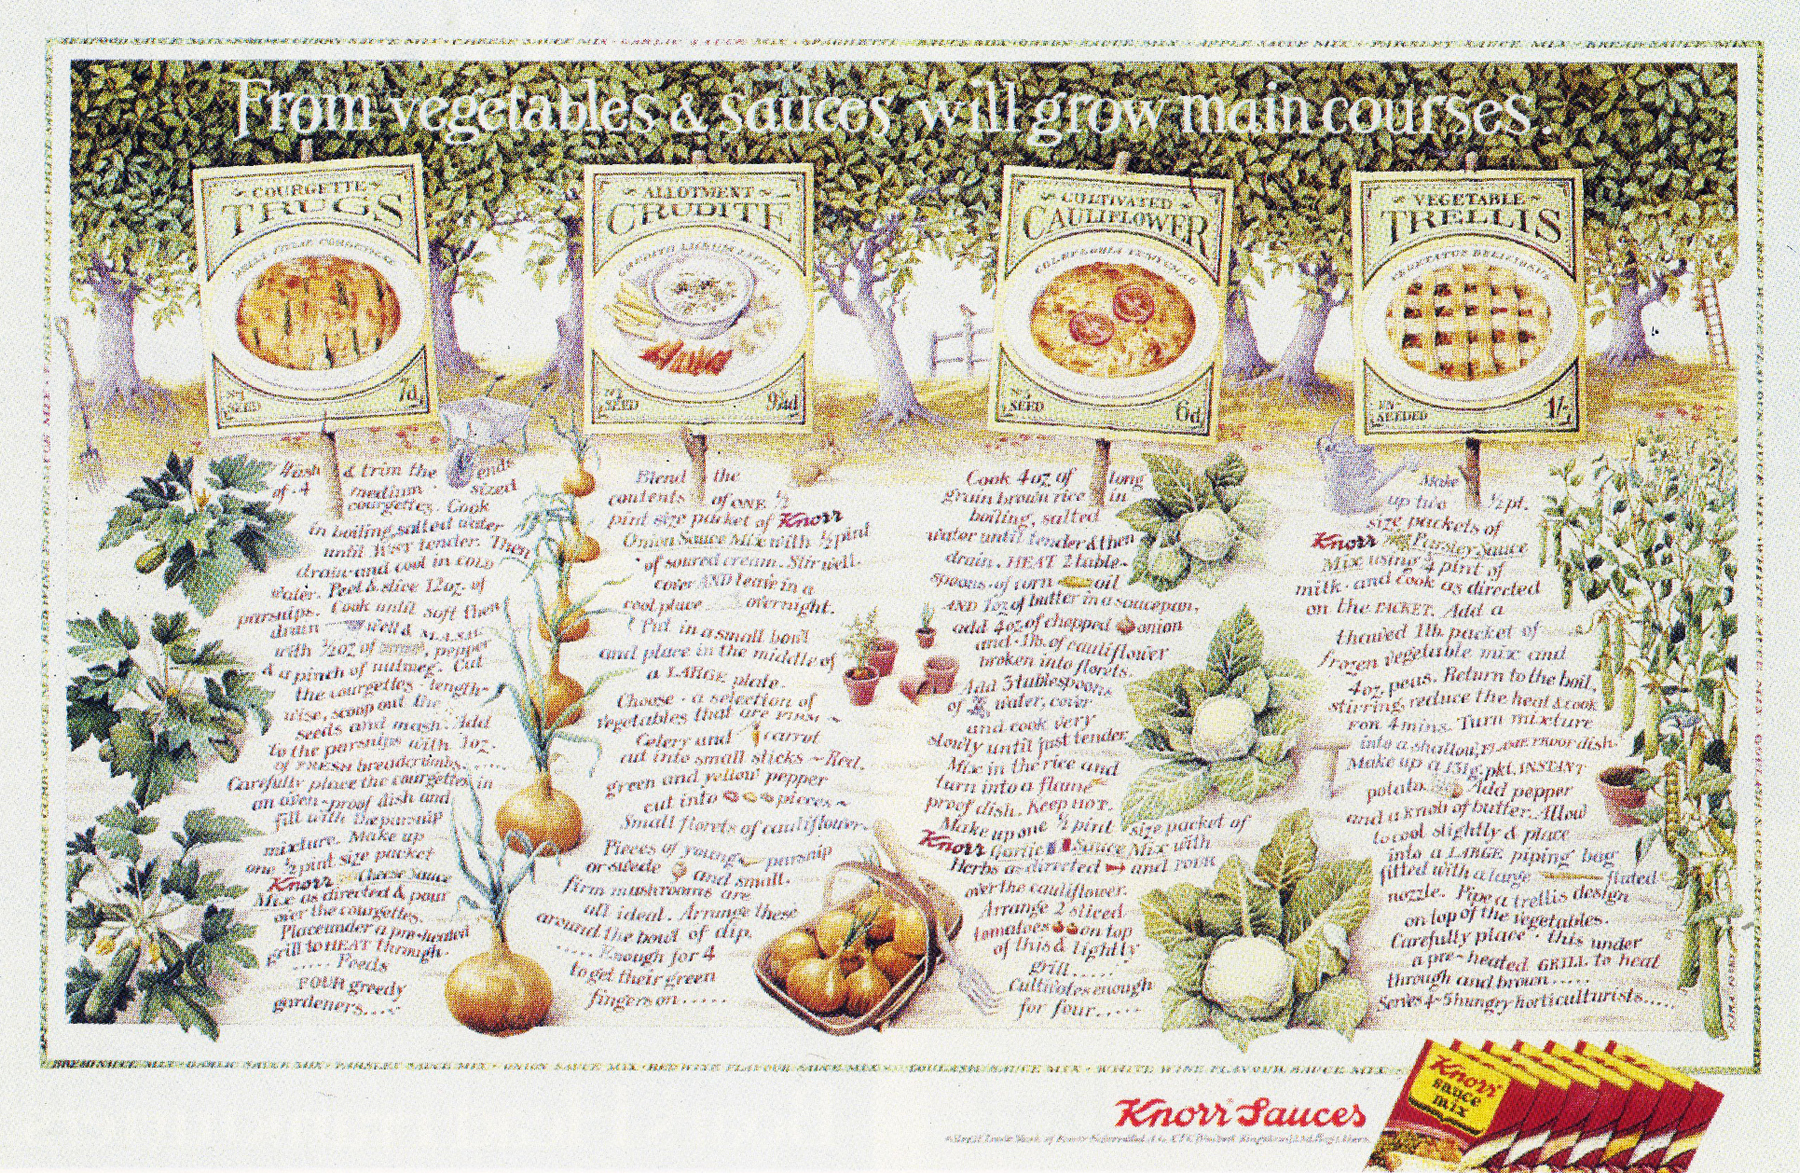 SEAFOOD SAUCE MIX · KORMA CURRY SAUCE MIX · CHEESE SAUCE MIX · GARLIC SAUCE MIX · SPAGHETTI SAUCE MIX · ONION SAUCE MIX · APPLE SAUCE MIX · PARSLEY SAUCE MIX · BREAD SAUCE MIX
From vegetables & sauces will grow main courses.
COURGETTE
TRUGS
7d
SEED
ALLOTMENT
CRUDITE
9¾d
SEED
CULTIVATED
CAULIFLOWER
6d
SEED
VEGETABLE
TRELLIS
VEGETATUS DELICIOUS
SEEDED
Wash & trim the ends
of 4 medium sized
courgettes. Cook
in boiling, salted water
until JUST tender. Then
drain and cool in COLD
water. Peel & slice 12oz. of
parsnips. Cook until soft then
drain well & MASH
with ½oz of butter, pepper
& a pinch of nutmeg. Cut
the courgettes length-
wise, scoop out the
seeds and mash. Add
to the parsnips with 1oz.
of FRESH breadcrumbs......
Carefully place the courgettes in
an oven-proof dish and
fill with the parsnip
mixture. Make up
one ½ pint size packet
Knorr Cheese Sauce
Mix as directed & pour
over the courgettes.
Place under a pre-heated
grill to HEAT through.
..... Feeds
FOUR greedy
gardeners....
Blend the
contents of ONE ½
pint size packet of Knorr
Onion Sauce Mix with ½ pint
of soured cream. Stir well,
cover AND leave in a
cool place overnight.
Put in a small bowl
and place in the middle of
a LARGE plate.
Choose a selection of
vegetables that are FIRM ~
Celery and carrot
cut into small sticks ~ Red,
green and yellow pepper
cut into pieces ~
Small florets of cauliflower.
Pieces of young parsnip
or swede and small,
firm mushrooms are
all ideal. Arrange these
around the bowl of dip.
..... Enough for 4
to get their green
fingers on ......
Cook 4oz of long
grain brown rice in
boiling, salted
water until tender & then
drain. HEAT 2 table-
spoons of corn oil
AND 1oz of butter in a saucepan,
add 4oz of chopped onion
and 1lb. of cauliflower
broken into florets.
Add 3 tablespoons
of water, cover
and cook very
slowly until just tender.
Mix in the rice and
turn into a flame
proof dish. Keep HOT.
Make up one ½ pint size packet of
Knorr Garlic Sauce Mix with
Herbs as directed and POUR
over the cauliflower.
Arrange 2 sliced
tomatoes on top
of this & lightly
grill......
Cultivates enough
for four.....
Make
up two ½ pt.
size packets of
Knorr Parsley Sauce
Mix using ¾ pint of
milk and cook as directed
on the PACKET. Add a
thawed 1lb. packet of
frozen vegetable mix and
4oz. peas. Return to the boil,
stirring, reduce the heat & cook
FOR 4 mins. Turn mixture
into a shallow, FLAMEPROOF dish.
Make up a 131g. pkt. INSTANT
potato. Add pepper
and a knob of butter. Allow
to cool slightly & place
into a LARGE piping bag
fitted with a large fluted
nozzle. Pipe a trellis design
on top of the vegetables.
Carefully place this under
a pre-heated GRILL to heat
through and brown.....
Serves 4-5 hungry horticulturists.....
BREAD SAUCE MIX · GARLIC SAUCE MIX · PARSLEY SAUCE MIX · ONION SAUCE MIX · RED WINE FLAVOUR SAUCE MIX · GOULASH SAUCE MIX · WHITE WINE FLAVOUR SAUCE MIX
Knorr
sauce
mix
Knorr Sauces